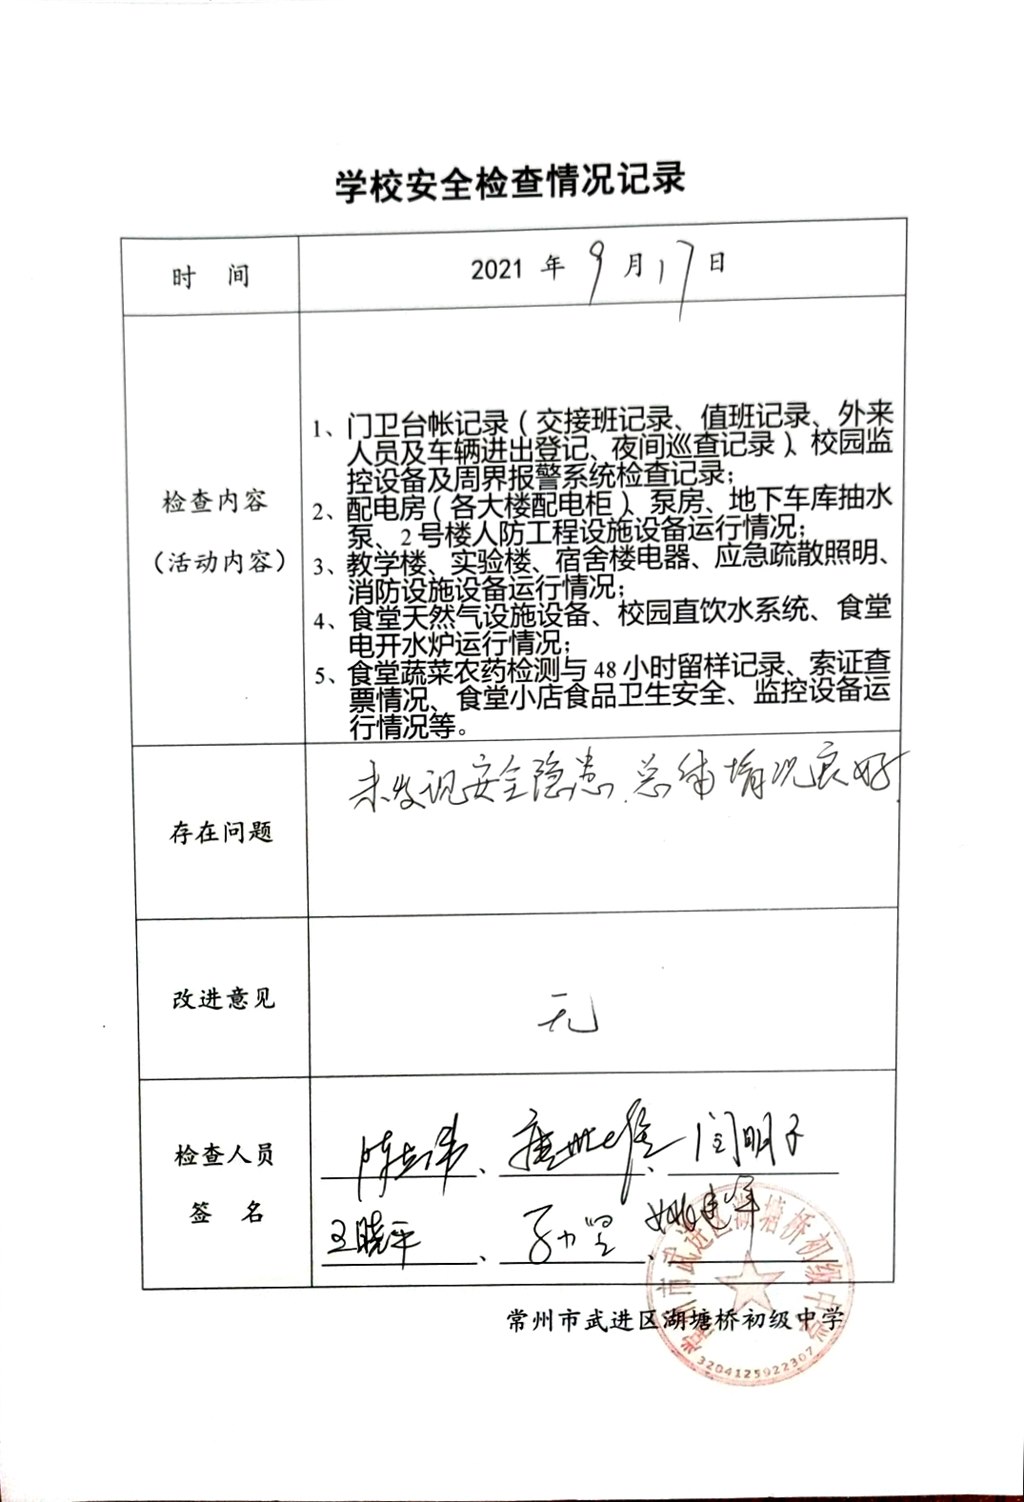 学校安全检查情况记录
时 间
2021 年 9 月 17 日
检查内容
（活动内容）
1、门卫台帐记录（交接班记录、值班记录、外来
人员及车辆进出登记、夜间巡查记录）、校园监
控设备及周界报警系统检查记录；
2、配电房（各大楼配电柜）、泵房、地下车库抽水
泵、2 号楼人防工程设施设备运行情况；
3、教学楼、实验楼、宿舍楼电器、应急疏散照明、
消防设施设备运行情况；
4、食堂天然气设施设备、校园直饮水系统、食堂
电开水炉运行情况；
5、食堂蔬菜农药检测与 48 小时留样记录、索证查
票情况、食堂小店食品卫生安全、监控设备运
行情况等。
存在问题
未发现安全隐患.总体情况良好.
改进意见
无
检查人员
签 名
、 、 闫明子
王晓平 、 、
常州市武进区湖塘桥初级中学
常州市武进区湖塘桥初级中学
3204125922307